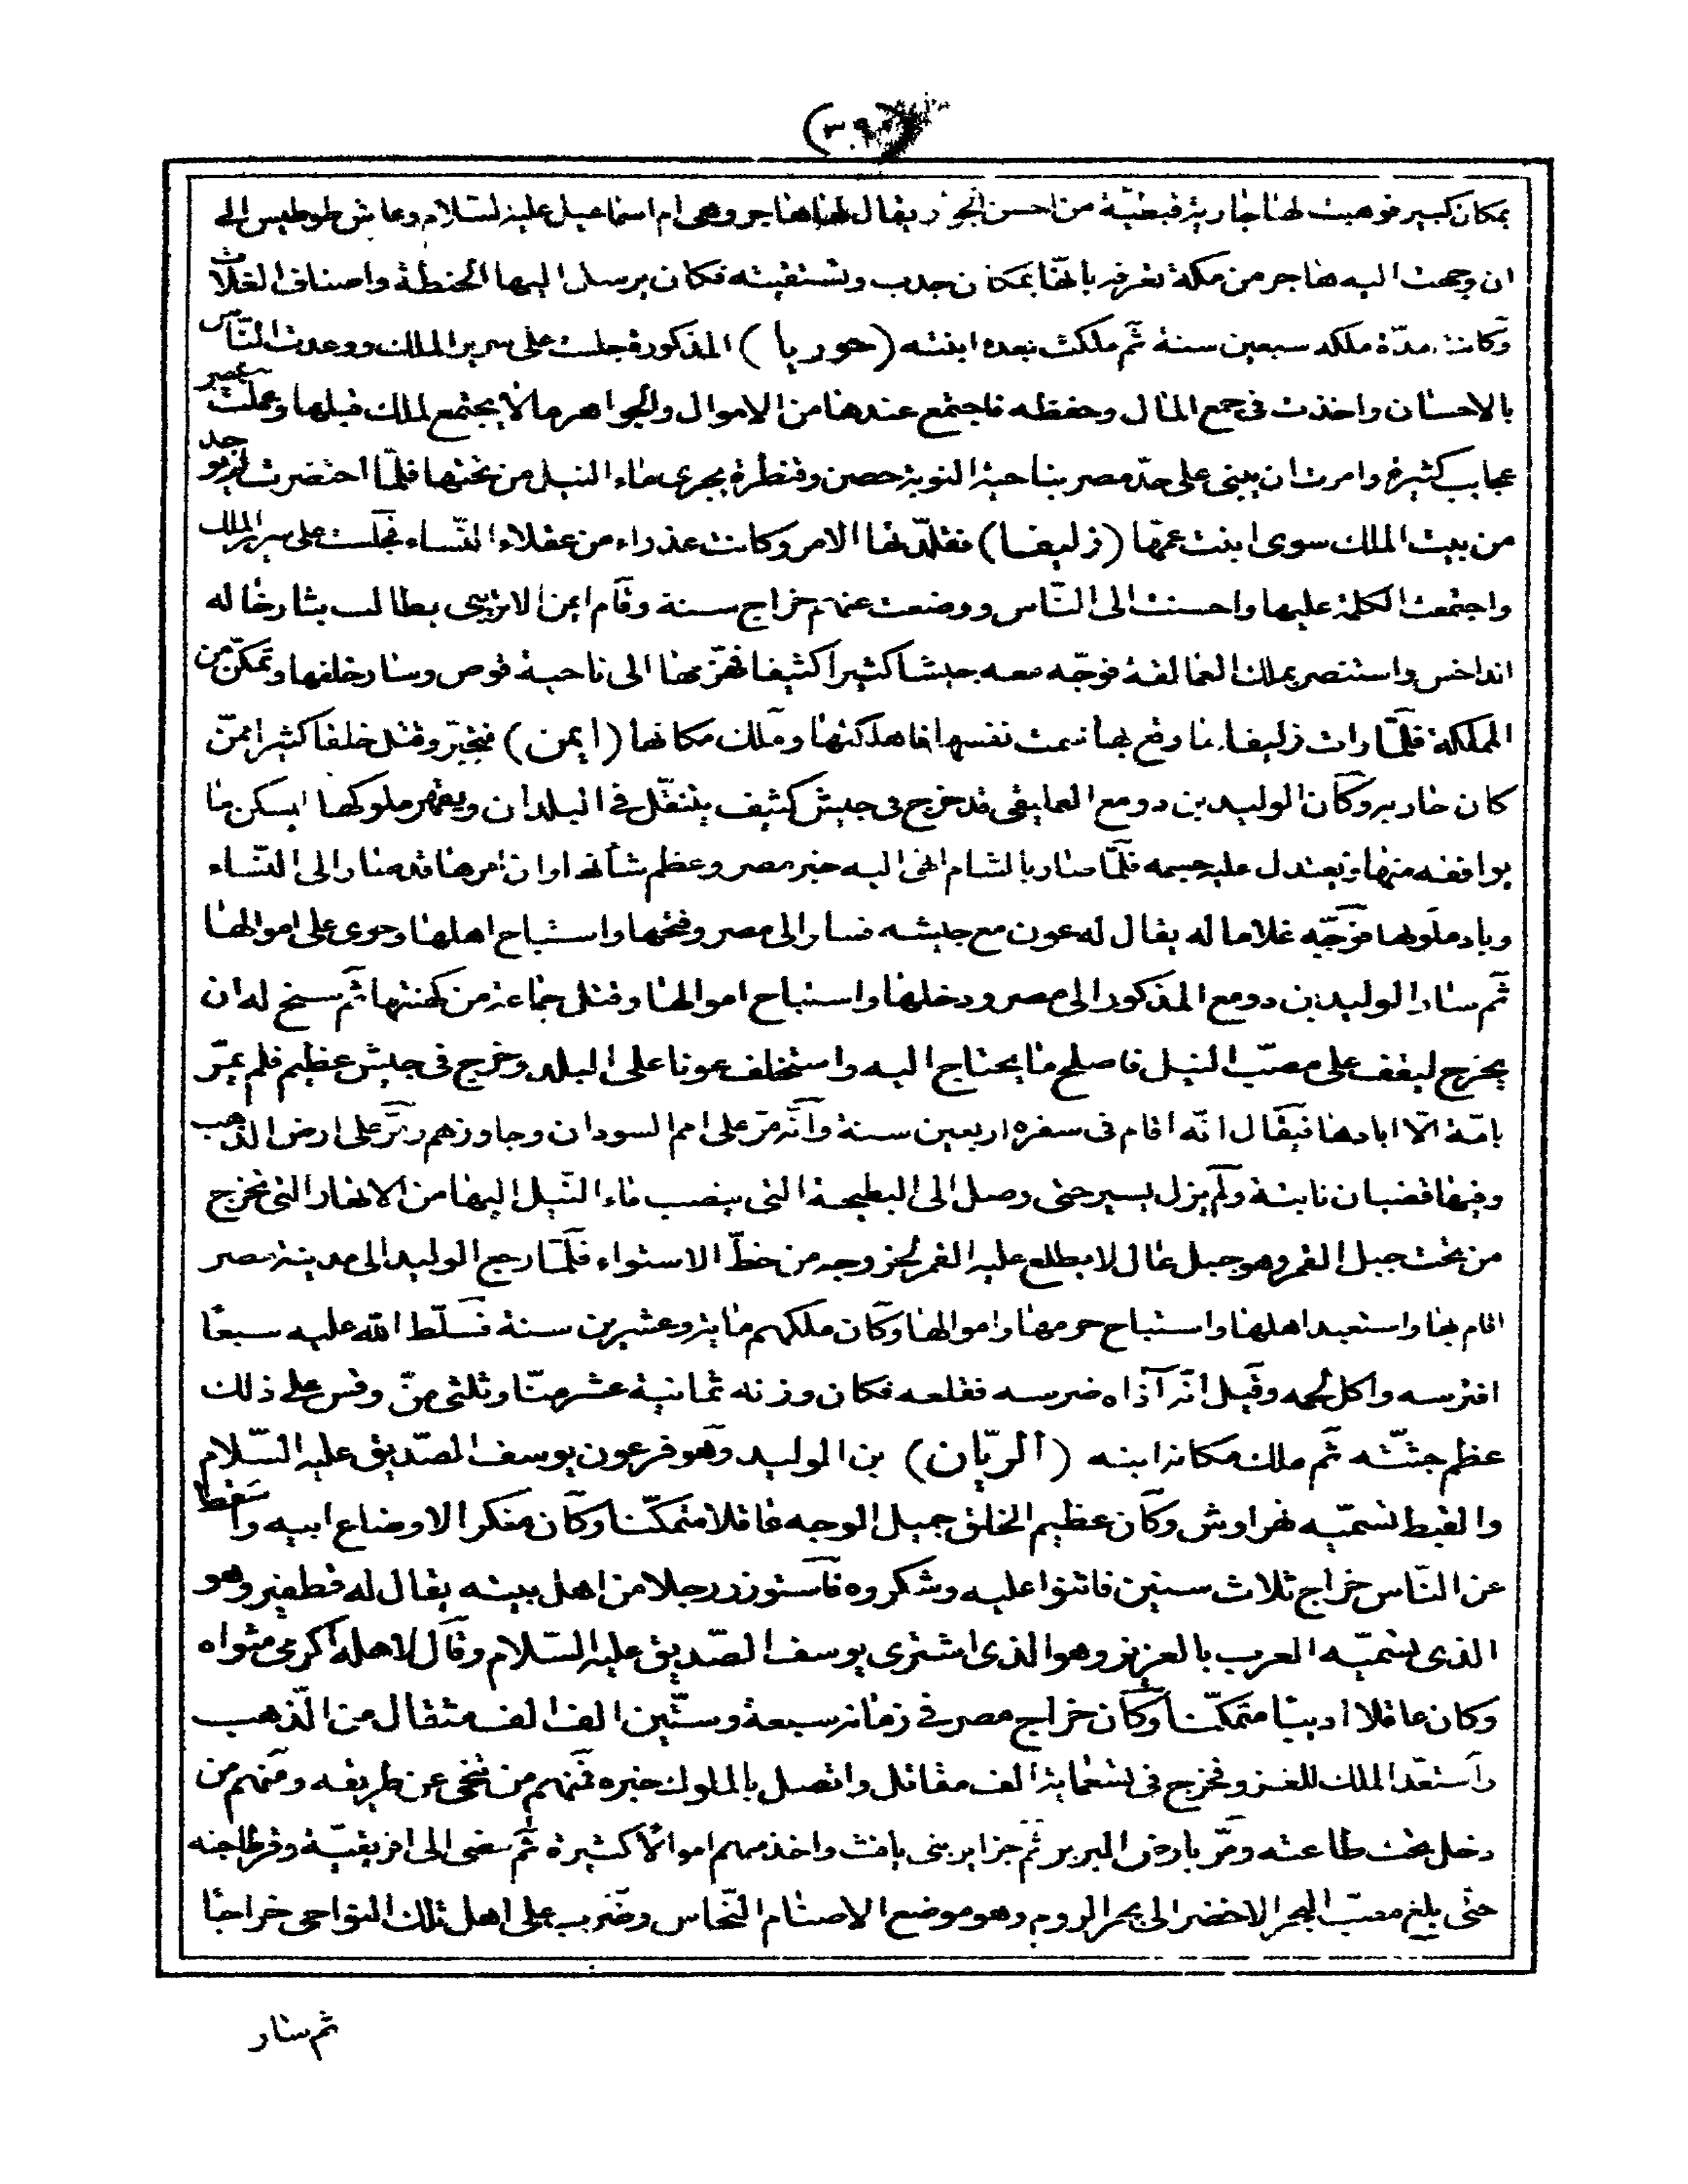 بمكان كبير فوهبت لها جارية قبطية من احسن الجوار يقال لها هاجر وهى ام اسماعيل عليه السلام وعاش طوطيس الى
ان وجهت اليه هاجر من مكة تعرفه بانها بمكان جدب وتستغيثه فكان يرسل اليها الحنطة واصناف الغلات
وكانت مدّة ملكه سبعين سنة ثم ملكت بعده ابنته (حوريا) المذكورة جلست على سرير الملك ووعدت النّاس
بالاحسان واخذت فى جمع المال وحفظه فاجتمع عندها من الاموال والجواهر ما لا يجتمع لملك قبلها وعملت بمصر
عجايب كثيرة وامرت ان يبنى على حدّ مصر بناحية النوبة حصن وقنطرة يجرى ماء النيل من تحتها فلمّا احتضرت لم يوجد
من بيت الملك سوى ابنت عمّها (زليفا) فقلّدتها الامر وكانت عذراء من عقلاء النّساء فجلست على سرير الملك
واجتمعت الكلمة عليها واحسنت الى النّاس ووضعت عنهم خراج سنة وقام ايمن الاتريبى يطالب بثار خاله
انداخس واستنصر بملك العمالقة فوجّه معه جيشا كثيرا كثيفا فهزمها الى ناحية قوص وسار خلفها وتمكّن من
المملكة فلمّا رات زليفا ما وقع بها سمت نفسها فاهلكتها وملك مكانها (ايمن) فتجبّر وقتل خلقا كثيرا ممّن
كان حاربه وكان الوليد بن دومع العمليقى قد خرج فى جيش كثيف يتنقّل فى البلدان ويقهر ملوكها ليسكن ما
يوافقه منها ويعتدل عليه جسمه فلمّا صار بالشام انهى اليه خبر مصر وعظم شأنها وان امرها قد صار الى النّساء
وباد ملوكها فوجّه غلاما له يقال له عون مع جيشه فسار الى مصر وفتحها واستباح اهلها وحوى على اموالها
ثم سار الوليد بن دومع المذكور الى مصر ودخلها واستباح اموالها وقتل جماعة من كهنتها ثم سنح له ان
يخرج ليقف على مصبّ النيل فاصلح ما يحتاج اليه واستخلف عونا على البلد وخرج فى جيش عظيم فلم يمرّ
بامّة الّا ابادها فيقال انّه اقام فى سفره اربعين سنة وانّه مرّ على امم السودان وجاوزهم ومرّ على ارض الذهب
وفيها قضبان نابتة ولم يزل يسير حتى وصل الى البطيحة التى ينصب ماء النّيل اليها من الانهار التى تخرج
من تحت جبل القمر وهو جبل عال لا يطلع عليه القمر لخروجه من خطّ الاستواء فلمّا رجع الوليد الى مدينة مصر
اقام بها واستعبد اهلها واستباح حرمها واموالها وكان ملكهم مائة وعشرين سنة فسلّط الله عليه سبعًا
افترسه واكل لحمه وقيل انّه آذاه ضرسه فقلعه فكان وزنه ثمانية عشر منّا وثلثى منّ وقس على ذلك
عظم جثّته ثم ملك مكانه ابنه (الريّان) بن الوليد وهو فرعون يوسف الصدّيق عليه السّلام
والقبط تسمّيه نهراوش وكان عظيم الخلق جميل الوجه عاقلا متمكّنا وكان منكرا لاوضاع ابيه واسقط
عن النّاس خراج ثلاث سنين فاثنوا عليه وشكروه فاستوزر رجلا من اهل بيته يقال له قطفير وهو
الذى تسمّيه العرب بالعزيز وهو الذى اشترى يوسف الصّديق عليه السّلام وقال لاهله اكرمى مثواه
وكان عاقلا اديبا متمكّنا وكان خراج مصر فى زمانه سبعة وستّين الف الف مثقال من الذّهب
واستعدّ الملك للغزو فخرج فى تسعماية الف مقاتل واتصل بالملوك خبره فمنهم من تنحى عن طريقه ومنهم من
دخل تحت طاعته ومرّ بارض البربر ثم جزاير بنى يافث واخذ منهم اموالًا كثيرة ثم مضى الى افريقيّة وقرطاجنه
حتّى بلغ مصبّ البحر الاخضر الى بحر الروم وهو موضع الاصنام النّحاس وضرب على اهل تلك النواحى خراجًا
ثم سار